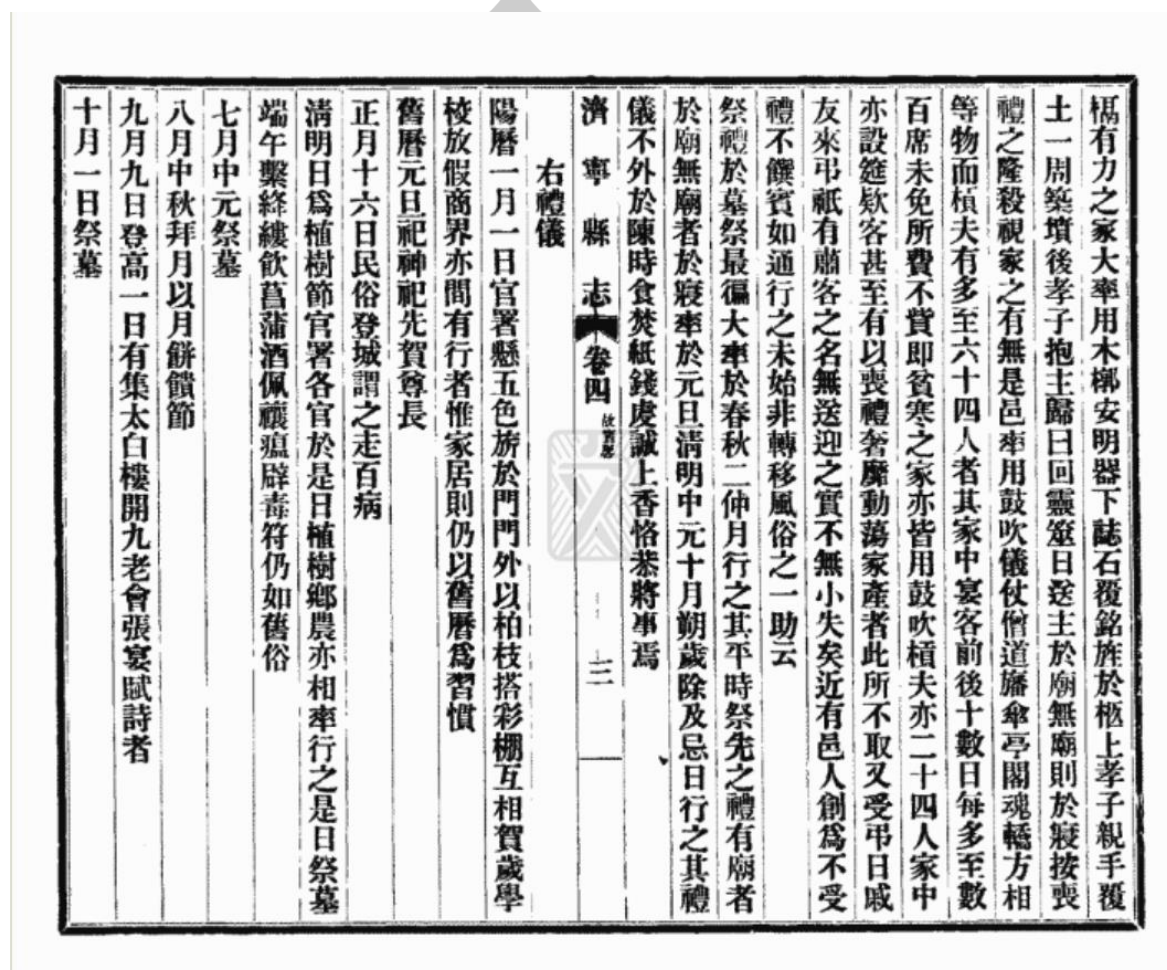 槅有力之家大率用木槨安明器下誌石覆銘旌於柩上孝子親手覆
土一周築墳後孝子抱主歸曰回靈筵日送主於廟無廟則於寢按喪
禮之隆殺視家之有無是邑率用鼓吹儀仗僧道旛傘亭閣魂轎方相
等物而槓夫有多至六十四人者其家中宴客前後十數日每多至數
百席未免所費不貲即貧寒之家亦皆用鼓吹槓夫亦二十四人家中
亦設筵欵客甚至有以喪禮奢靡動蕩家產者此所不取又受弔日戚
友來弔祇有肅客之名無送迎之實不無小失矣近有邑人創為不受
禮不饌賓如通行之未始非轉移風俗之一助云
祭禮於墓祭最徧大率於春秋二仲月行之其平時祭先之禮有廟者
於廟無廟者於寢率於元旦清明中元十月朔歲除及忌日行之其禮
儀不外於陳時食焚紙錢虔誠上香恪恭將事焉
濟寧縣志 卷四 故實畧 三
右禮儀
陽曆一月一日官署懸五色旂於門門外以柏枝搭彩棚互相賀歲學
校放假商界亦間有行者惟家居則仍以舊曆為習慣
舊曆元旦祀神祀先賀尊長
正月十六日民俗登城謂之走百病
清明日為植樹節官署各官於是日植樹鄉農亦相率行之是日祭墓
端午繫絳縷飲菖蒲酒佩禳瘟辟毒符仍如舊俗
七月中元祭墓
八月中秋拜月以月餅饋節
九月九日登高一日有集太白樓開九老會張宴賦詩者
十月一日祭墓